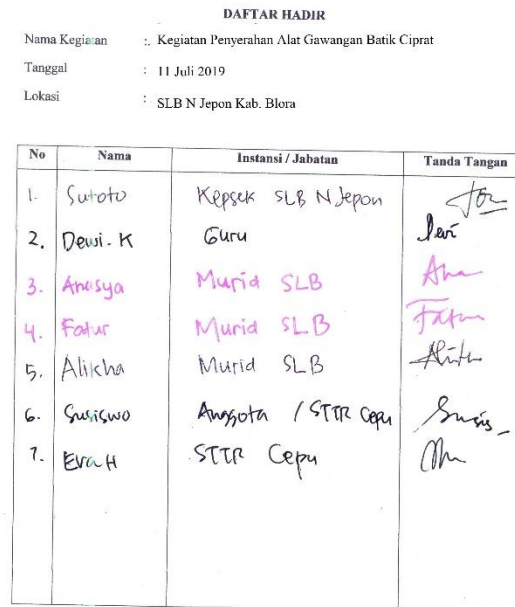 DAFTAR HADIR
Nama Kegiatan :. Kegiatan Penyerahan Alat Gawangan Batik Ciprat
Tanggal : 11 Juli 2019
Lokasi : SLB N Jepon Kab. Blora
No Nama Instansi / Jabatan Tanda Tangan
1. Sutoto Kepsek SLB N Jepon
2. Dewi. K Guru Dewi
3. Anasya Murid SLB Ana
4. Fatur Murid SLB Fatur
5. Alikha Murid SLB
6. Susiswo Anggota / STTR Cepu Susis
7. Eva H STTR Cepu